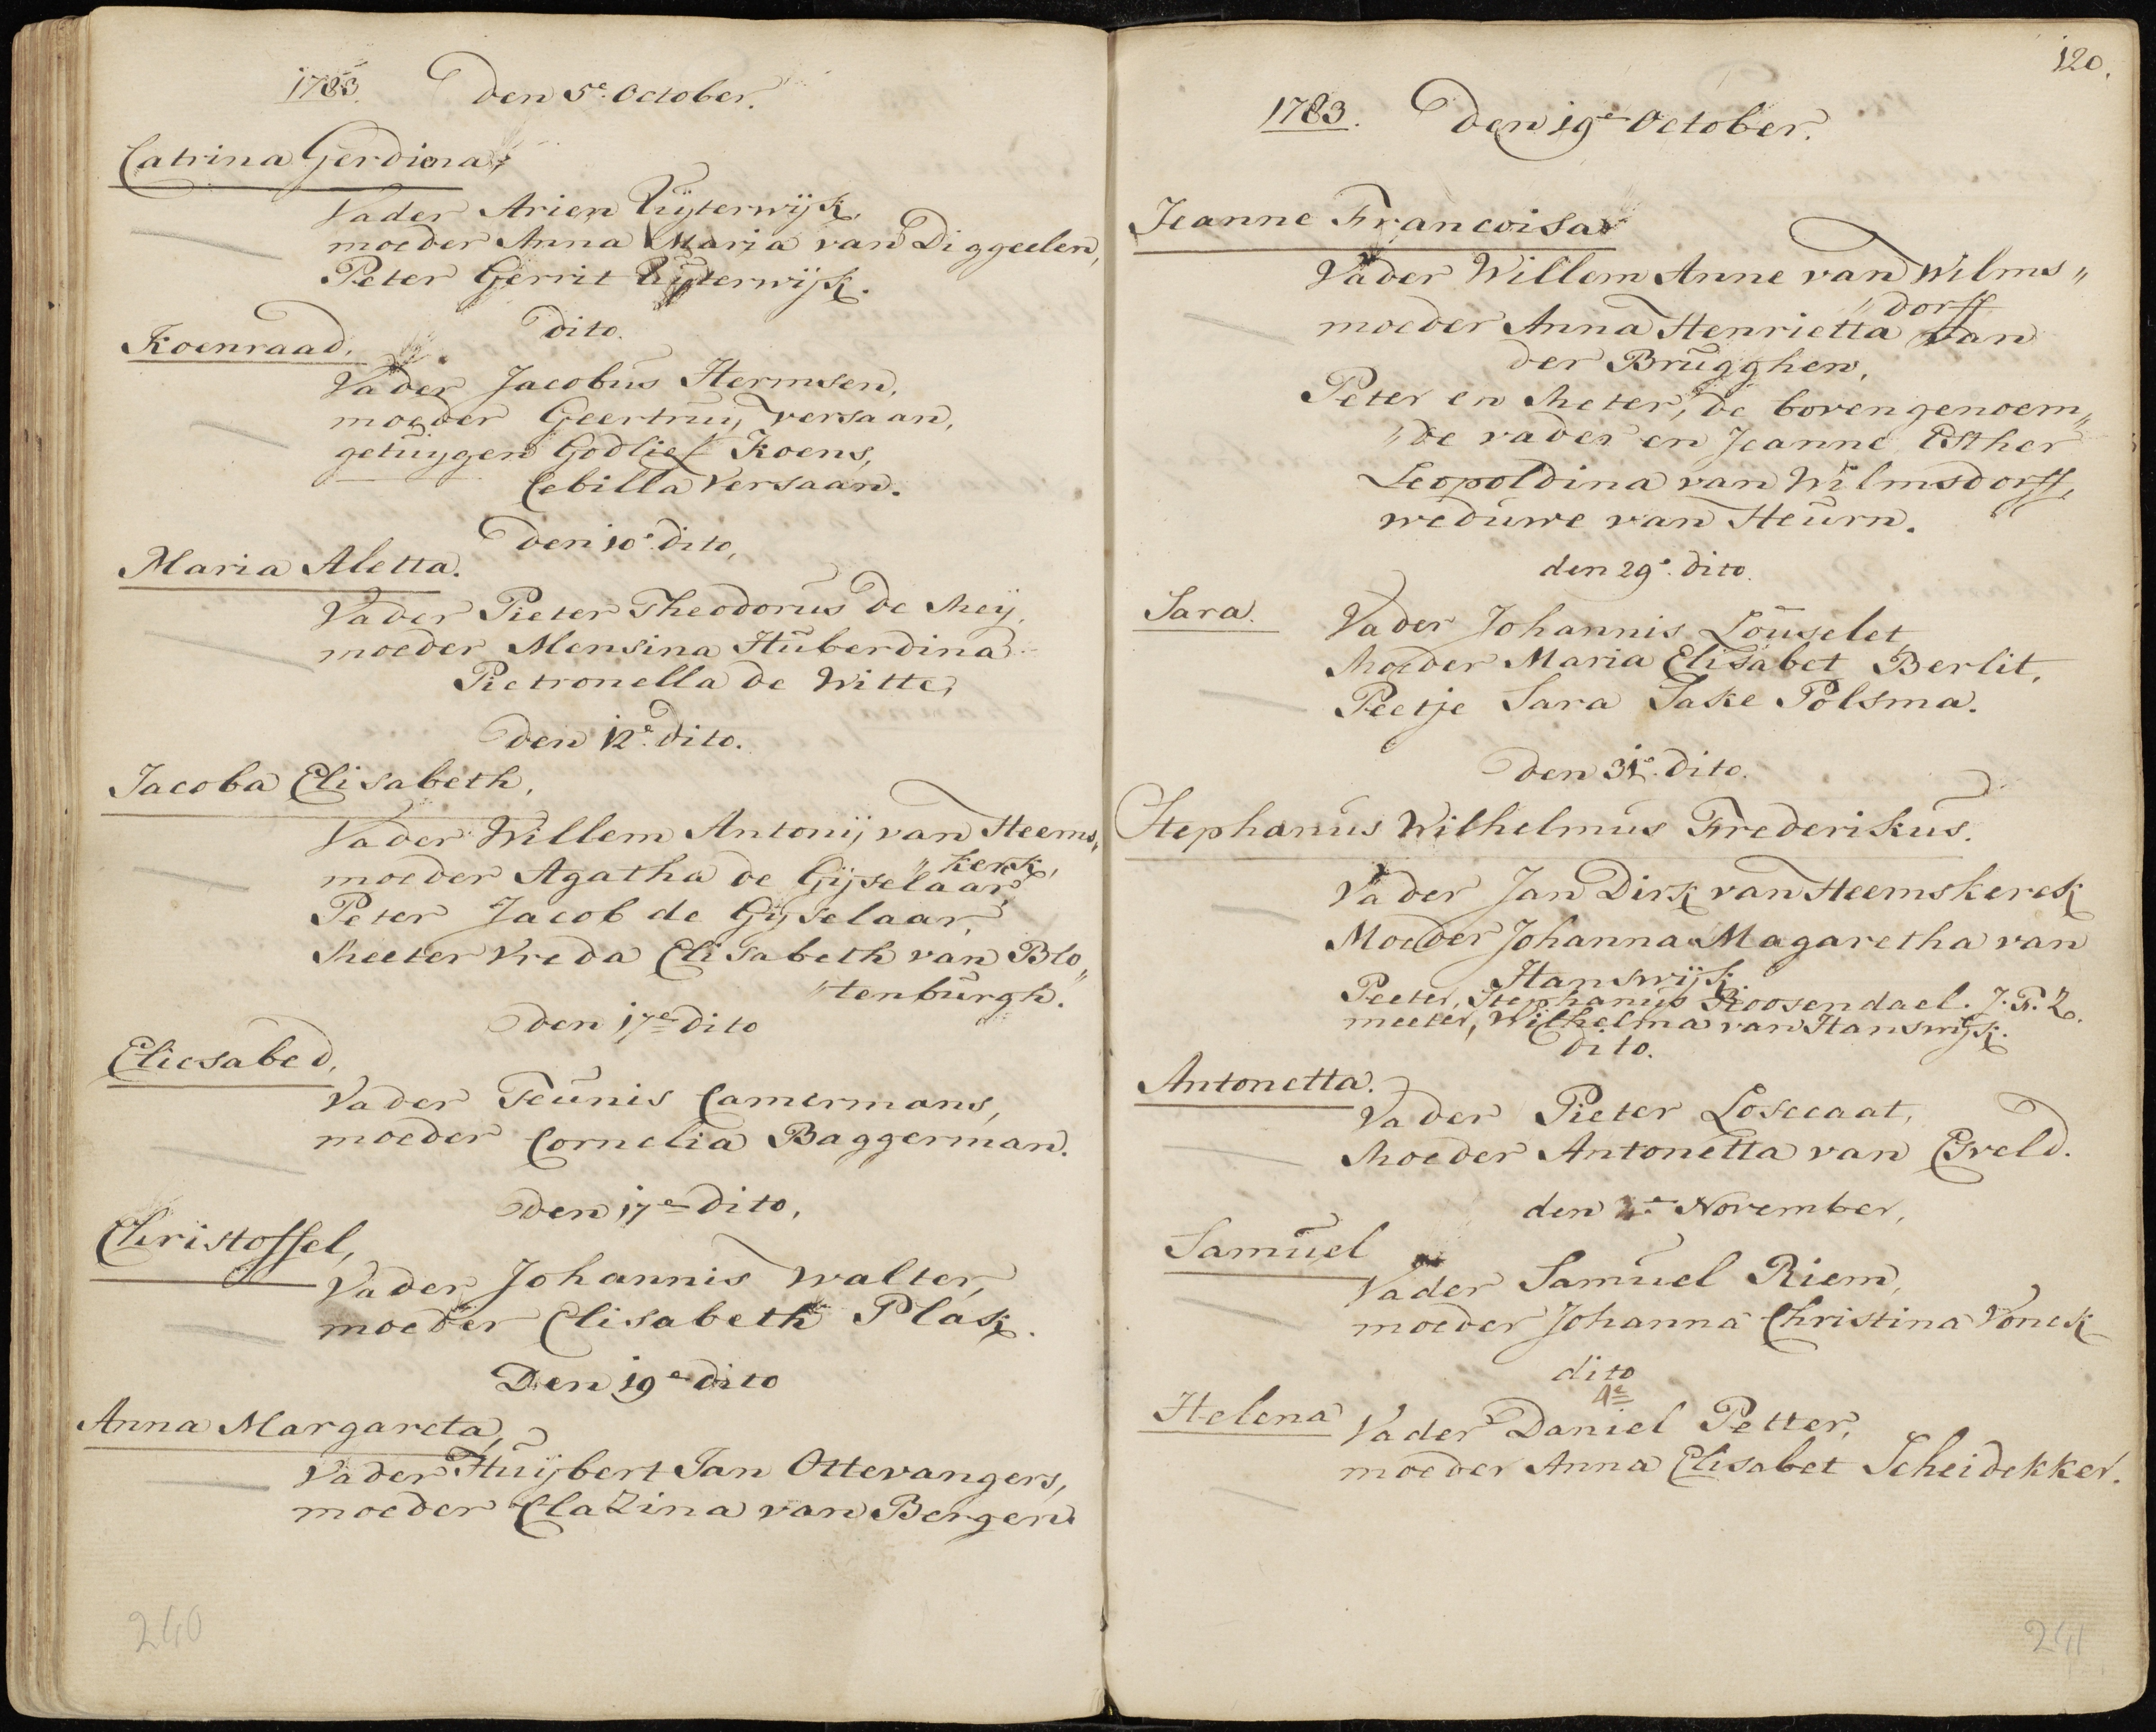 1783. Den 5e. October.
Catrina Gerdina,
Vader Arien Uijterwijk,
moeder Anna Maria van Diggeelen,
Peter Gerrit Uijterwijk.
dito.
Koenraad,
Vader Jacobus Hermsen,
moeder Geertruij versaan,
getuijgen Godlief Koens,
Cebilla Versaan.
den 10e. dito,
Maria Aletta.
Vader Pieter Theodorus De Meij,
moeder Mensina Huberdina
Pietronella de Witte,
den 12e. dito.
Jacoba Elisabeth,
Vader Willem Antonij van Heems„
„kerk,
moeder Agatha de Gijselaar,
Peter Jacob de Gijselaar,
Meeter Vreda Elisabeth van Blo„
„tenburgh.
den 17e dito
Eliesabed,
Vader Teunis Camermans,
moeder Cornelia Baggerman.
den 17e dito,
Christoffel,
Vader Johannis Walter,
moeder Elisabeth Plask.
Den 19e dito
Anna Margareta,
Vader Huijbert Jan Ottevangers,
moeder Clazina van Bergen.
240
120.
1783. Den 19e October.
Jeanne Francoisa
Vader Willem Anne van Wilms„
„dorff
moeder Anna Henrietta van
der Brugghen,
Peter en Meter, de bovengenoem„
„de vader en Jeanne Esther
Leopoldina van Wilmsdorff,
weduwe van Heurn.
den 29e. dito.
Sara.
Vader Johannis Louselet,
Moeder Maria Elisabet Berlit,
Peetje Sara Sake Polsma.
den 31e. dito.
Stephanus Wilhelmus Frederikus.
Vader Jan Dirk van Heemskerck
Moeder Johanna Magaretha van
Hanswijk.
Peeter, Stephanus Roosendael. J. F. Z.
meeter, Wilhelma van Hanswijk.
dito.
Antonetta.
Vader Pieter Losecaat,
Moeder Antonetta van Esveld.
den 2e November,
Samuel
Vader Samuel Riem,
moeder Johanna Christina Vonck
dito
4e
Helena
Vader Daniel Petter,
moeder Anna Elisabet Scheidekker.
241